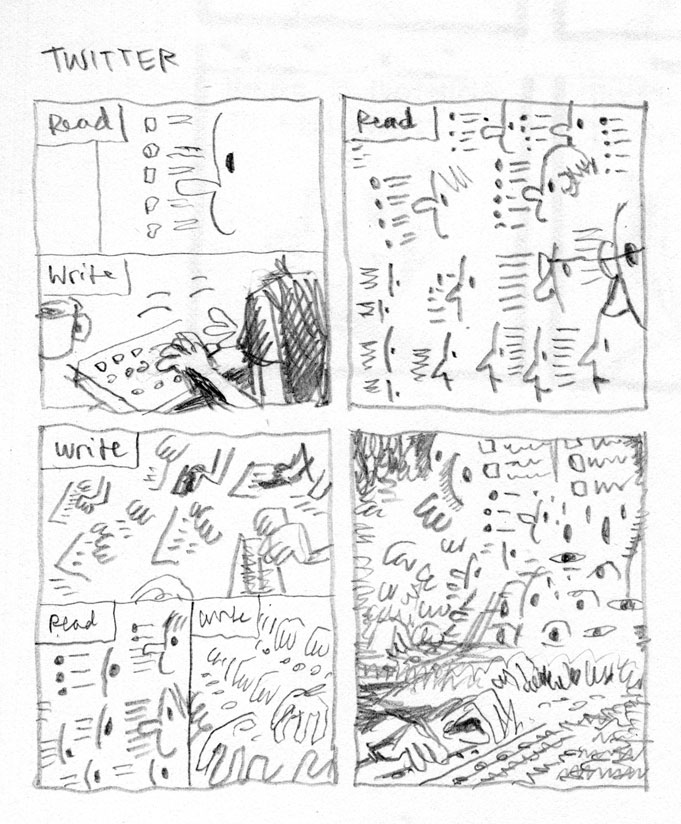 TWITTER
Read
Write
Read
Write
Read
Write